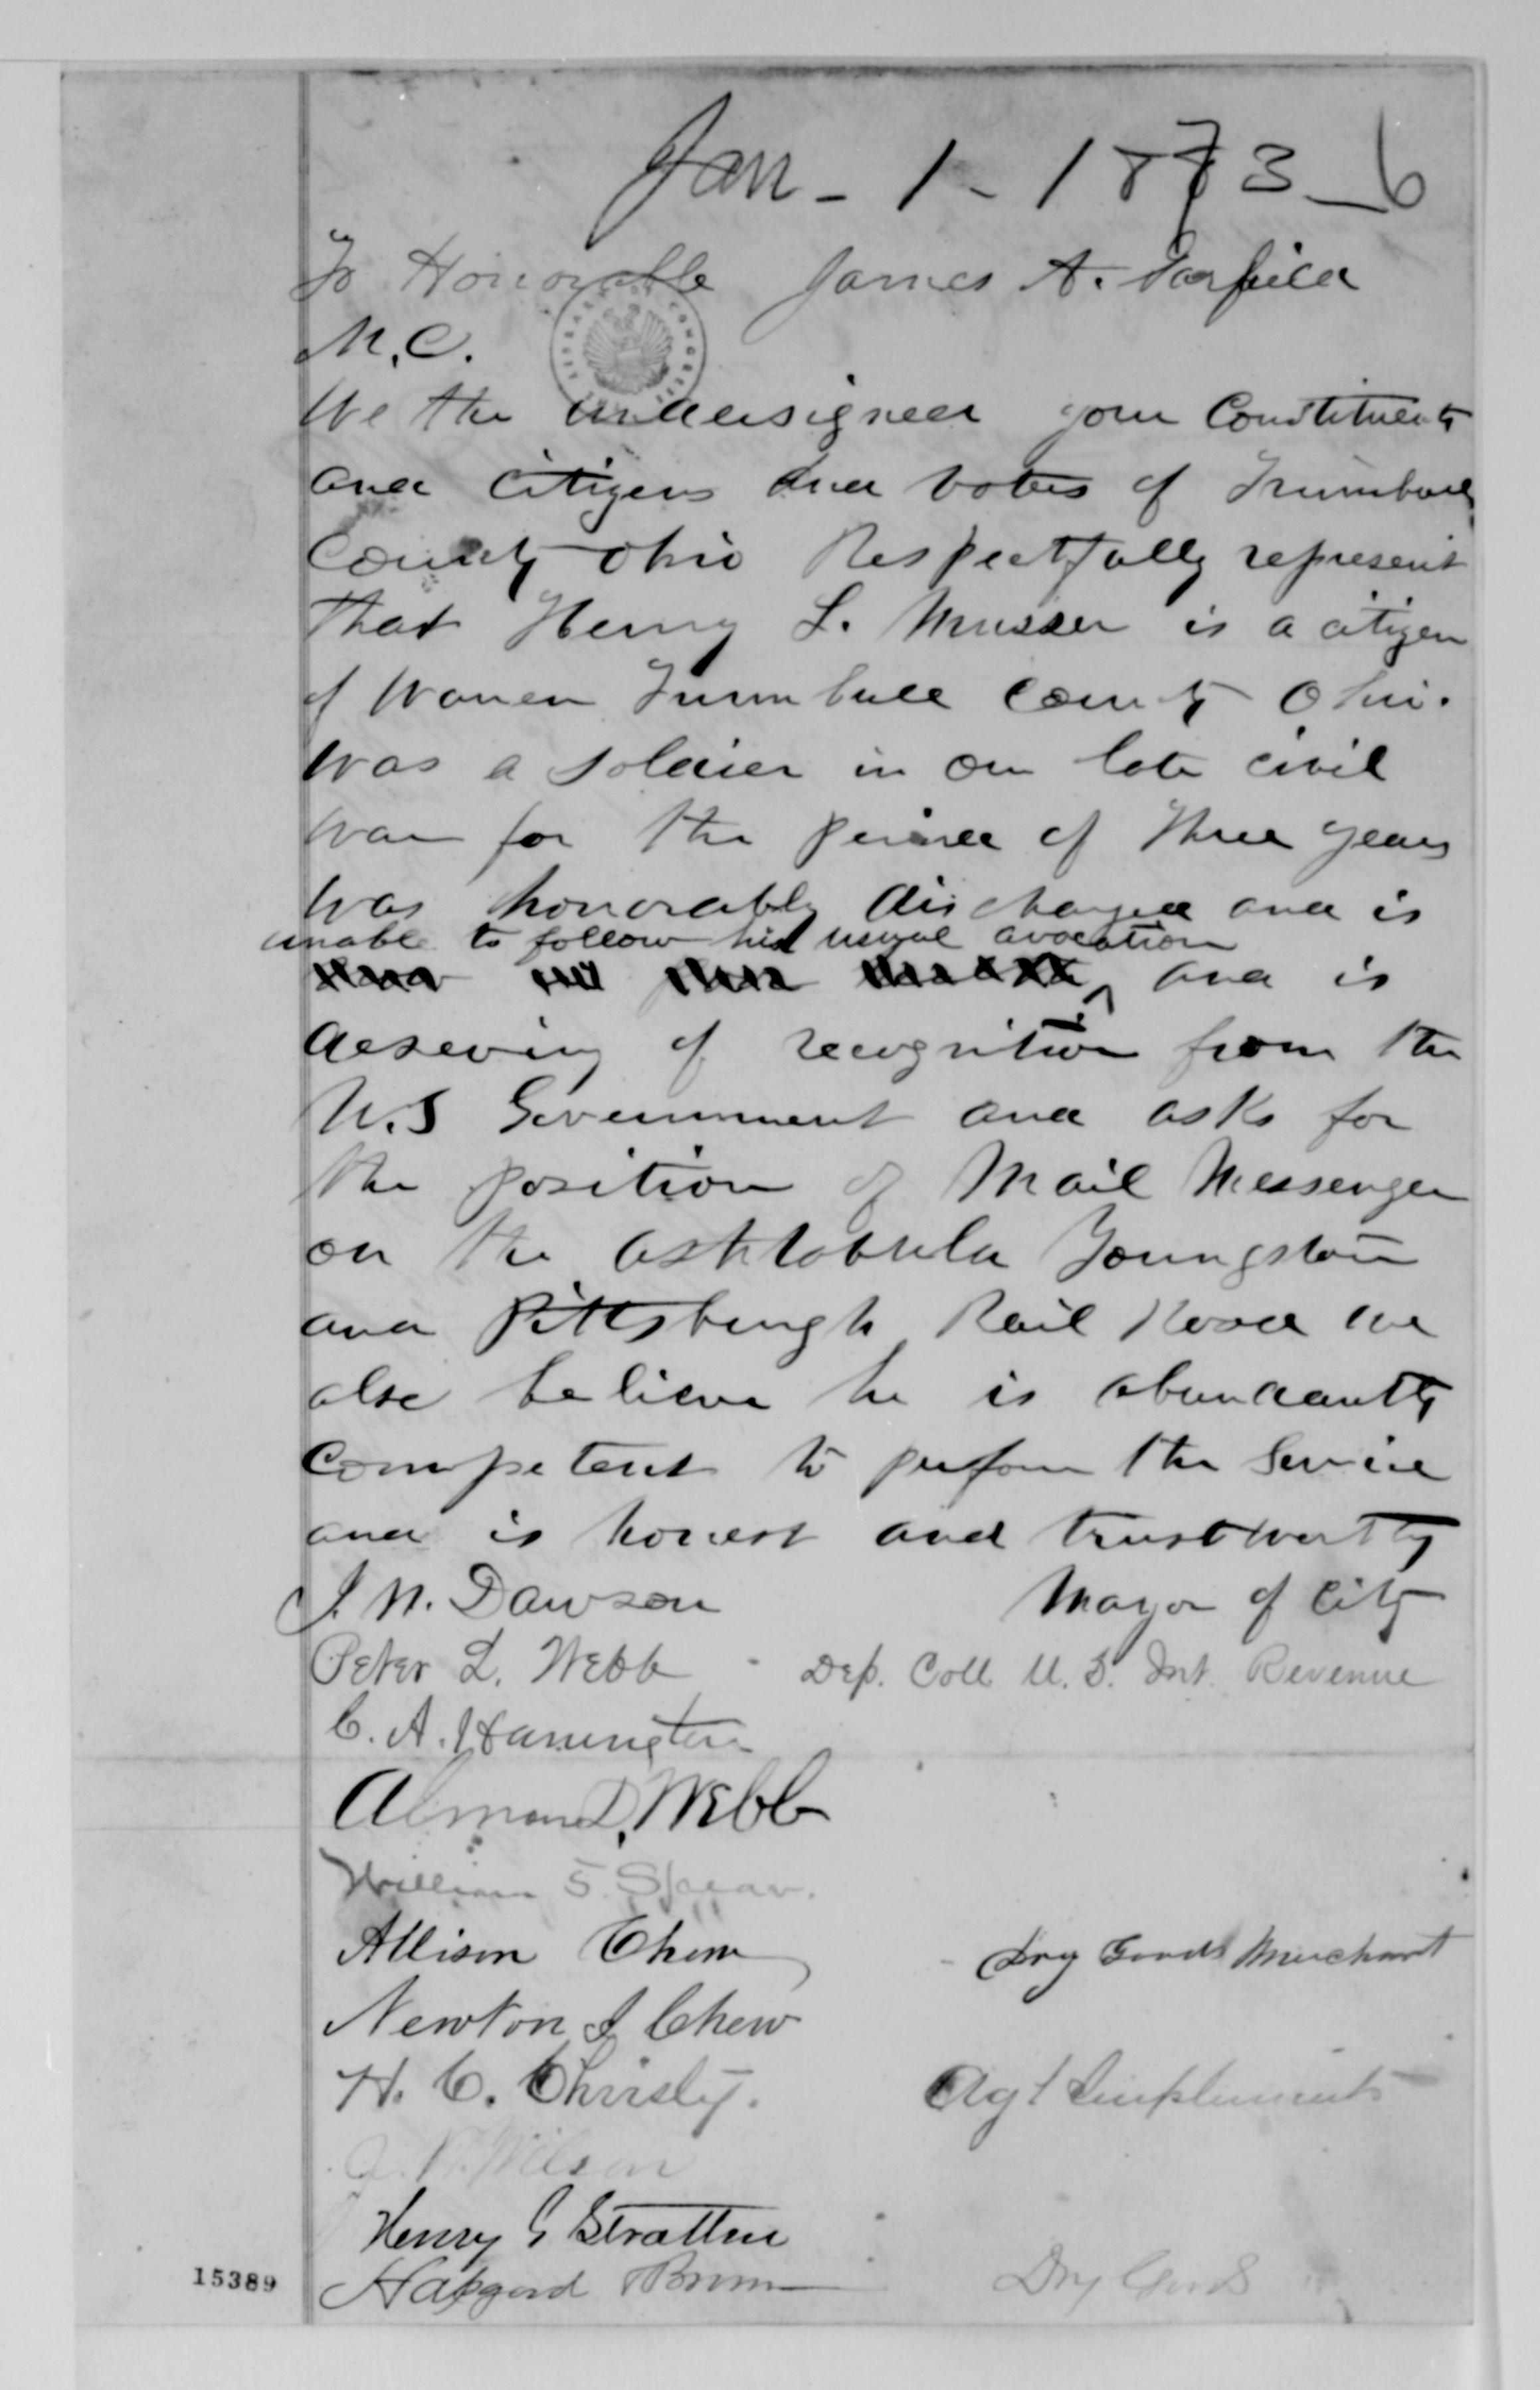 Jan - 1 - 1873 - 6
To Honorable James A. Garfield
M.C.
We the undersigned your Constituents
and citizens and voters of Trumbull
County Ohio Respectfully represent
that Henry L. Musser is a citizen
of Warren Trumbull County Ohio.
was a soldier in our late civil
war for the period of three years
was honorably discharged and is
unable to follow his usual avocation
and is
deserving of recognition from the
U.S Government and asks for
the position of Mail Messenger
on the Ashtabula Youngstown
and Pittsburgh Rail Road we
also believe he is abundantly
Competent to perform the Service
and is honest and trustworthy
J. N. Dawson Mayor of City
Peter L. Webb - Dep. Coll U.S. Int. Revenue
C. A. Harrington
Almon D. Webb
William T. Spear.
Allison Chew - Dry Goods Merchant
Newton J Chew
H. C. Christy. Agt Implements
Wilson
Henry G Stratton
Hapgood Brown Dry Goods
15389